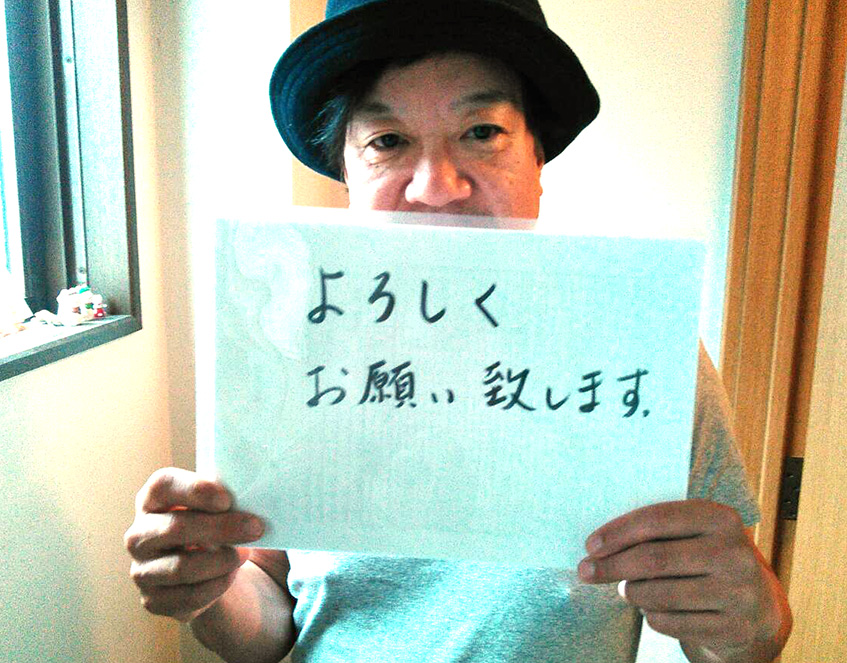 よろしく
お願い致します.